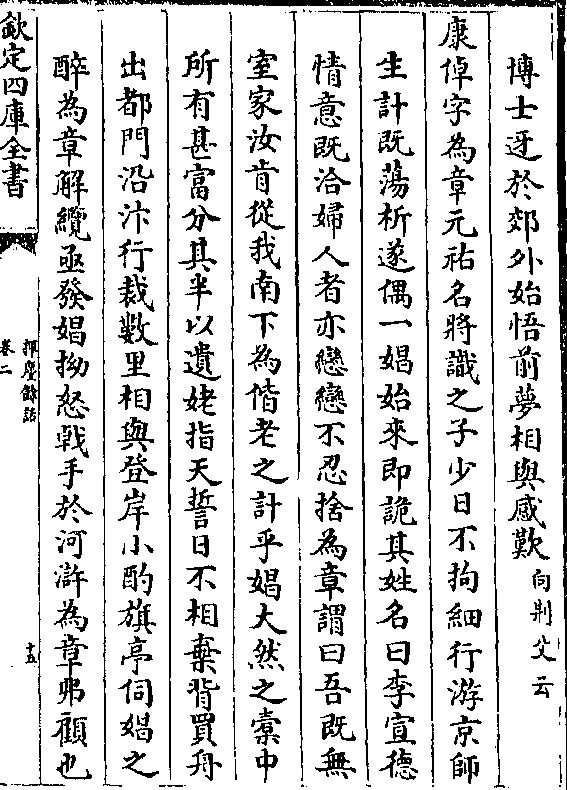 博士迓於郊外始悟前夢相與感歎向荆父云
康倬字為章元祐名將識之子少日不拘細行游京師
生計既蕩析遂偶一娼始來即詭其姓名曰李宣德
情意既洽婦人者亦戀戀不忍捨為章謂曰吾既無
室家汝肯從我南下為偕老之計乎娼大然之橐中
所有甚富分其半以遺姥指天誓日不相棄背買舟
出都門沿汴行裁數里相與登岸小酌旗亭伺娼之
醉為章解纜亟發娼拗怒戟手於河滸為章弗顧也
欽定四庫全書
揮麈餘話
卷二
十五